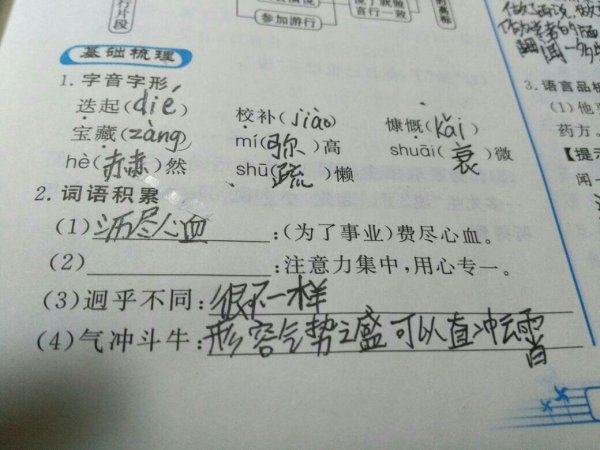 行片段
参加游行
说了就做
言行一致
基础梳理
1.字音字形
迭起(dié) 校补(jiào) 慷慨(kǎi)
宝藏(zàng) mí(弥)高 shuāi(衰)微
hè(赫)然 shū(疏)懒
2.词语积累
(1)沥尽心血:(为了事业)费尽心血。
(2)________:注意力集中,用心专一。
(3)迥乎不同:很不一样
(4)气冲斗牛:形容气势之盛可以直冲云霄
3.语言品
(1)他
药方。
【提
闻一